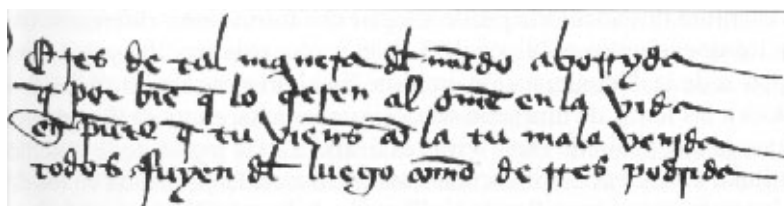 Eres de tal manera del mundo aborryda
q por bie q lo qeren al ome en la vida
en puto q tu vienes co la tu mala venida
todos fuyen del luego como de rres podrida